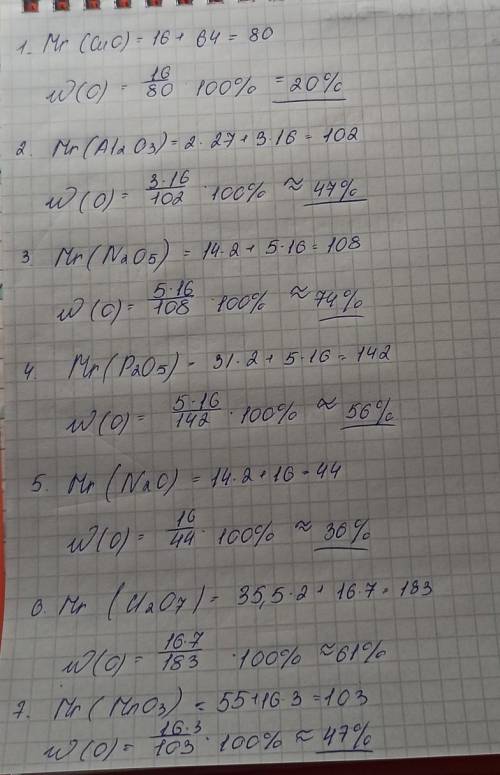 1. Mr (CuO) = 16 + 64 = 80
W(O) = 16/80 · 100% = 20%
2. Mr (Al2O3) = 2·27 + 3·16 = 102
W(O) = 3·16/102 · 100% ≈ 47%
3. Mr (N2O5) = 14·2 + 5·16 = 108
W(O) = 5·16/108 · 100% ≈ 74%
4. Mr (P2O5) = 31·2 + 5·16 = 142
W(O) = 5·16/142 · 100% ≈ 56%
5. Mr (N2O) = 14·2 + 16 = 44
W(O) = 16/44 · 100% ≈ 36%
6. Mr (Cl2O7) = 35,5·2 + 16·7 = 183
W(O) = 16·7/183 · 100% ≈ 61%
7. Mr (MnO3) = 55 + 16·3 = 103
W(O) = 16·3/103 · 100% ≈ 47%